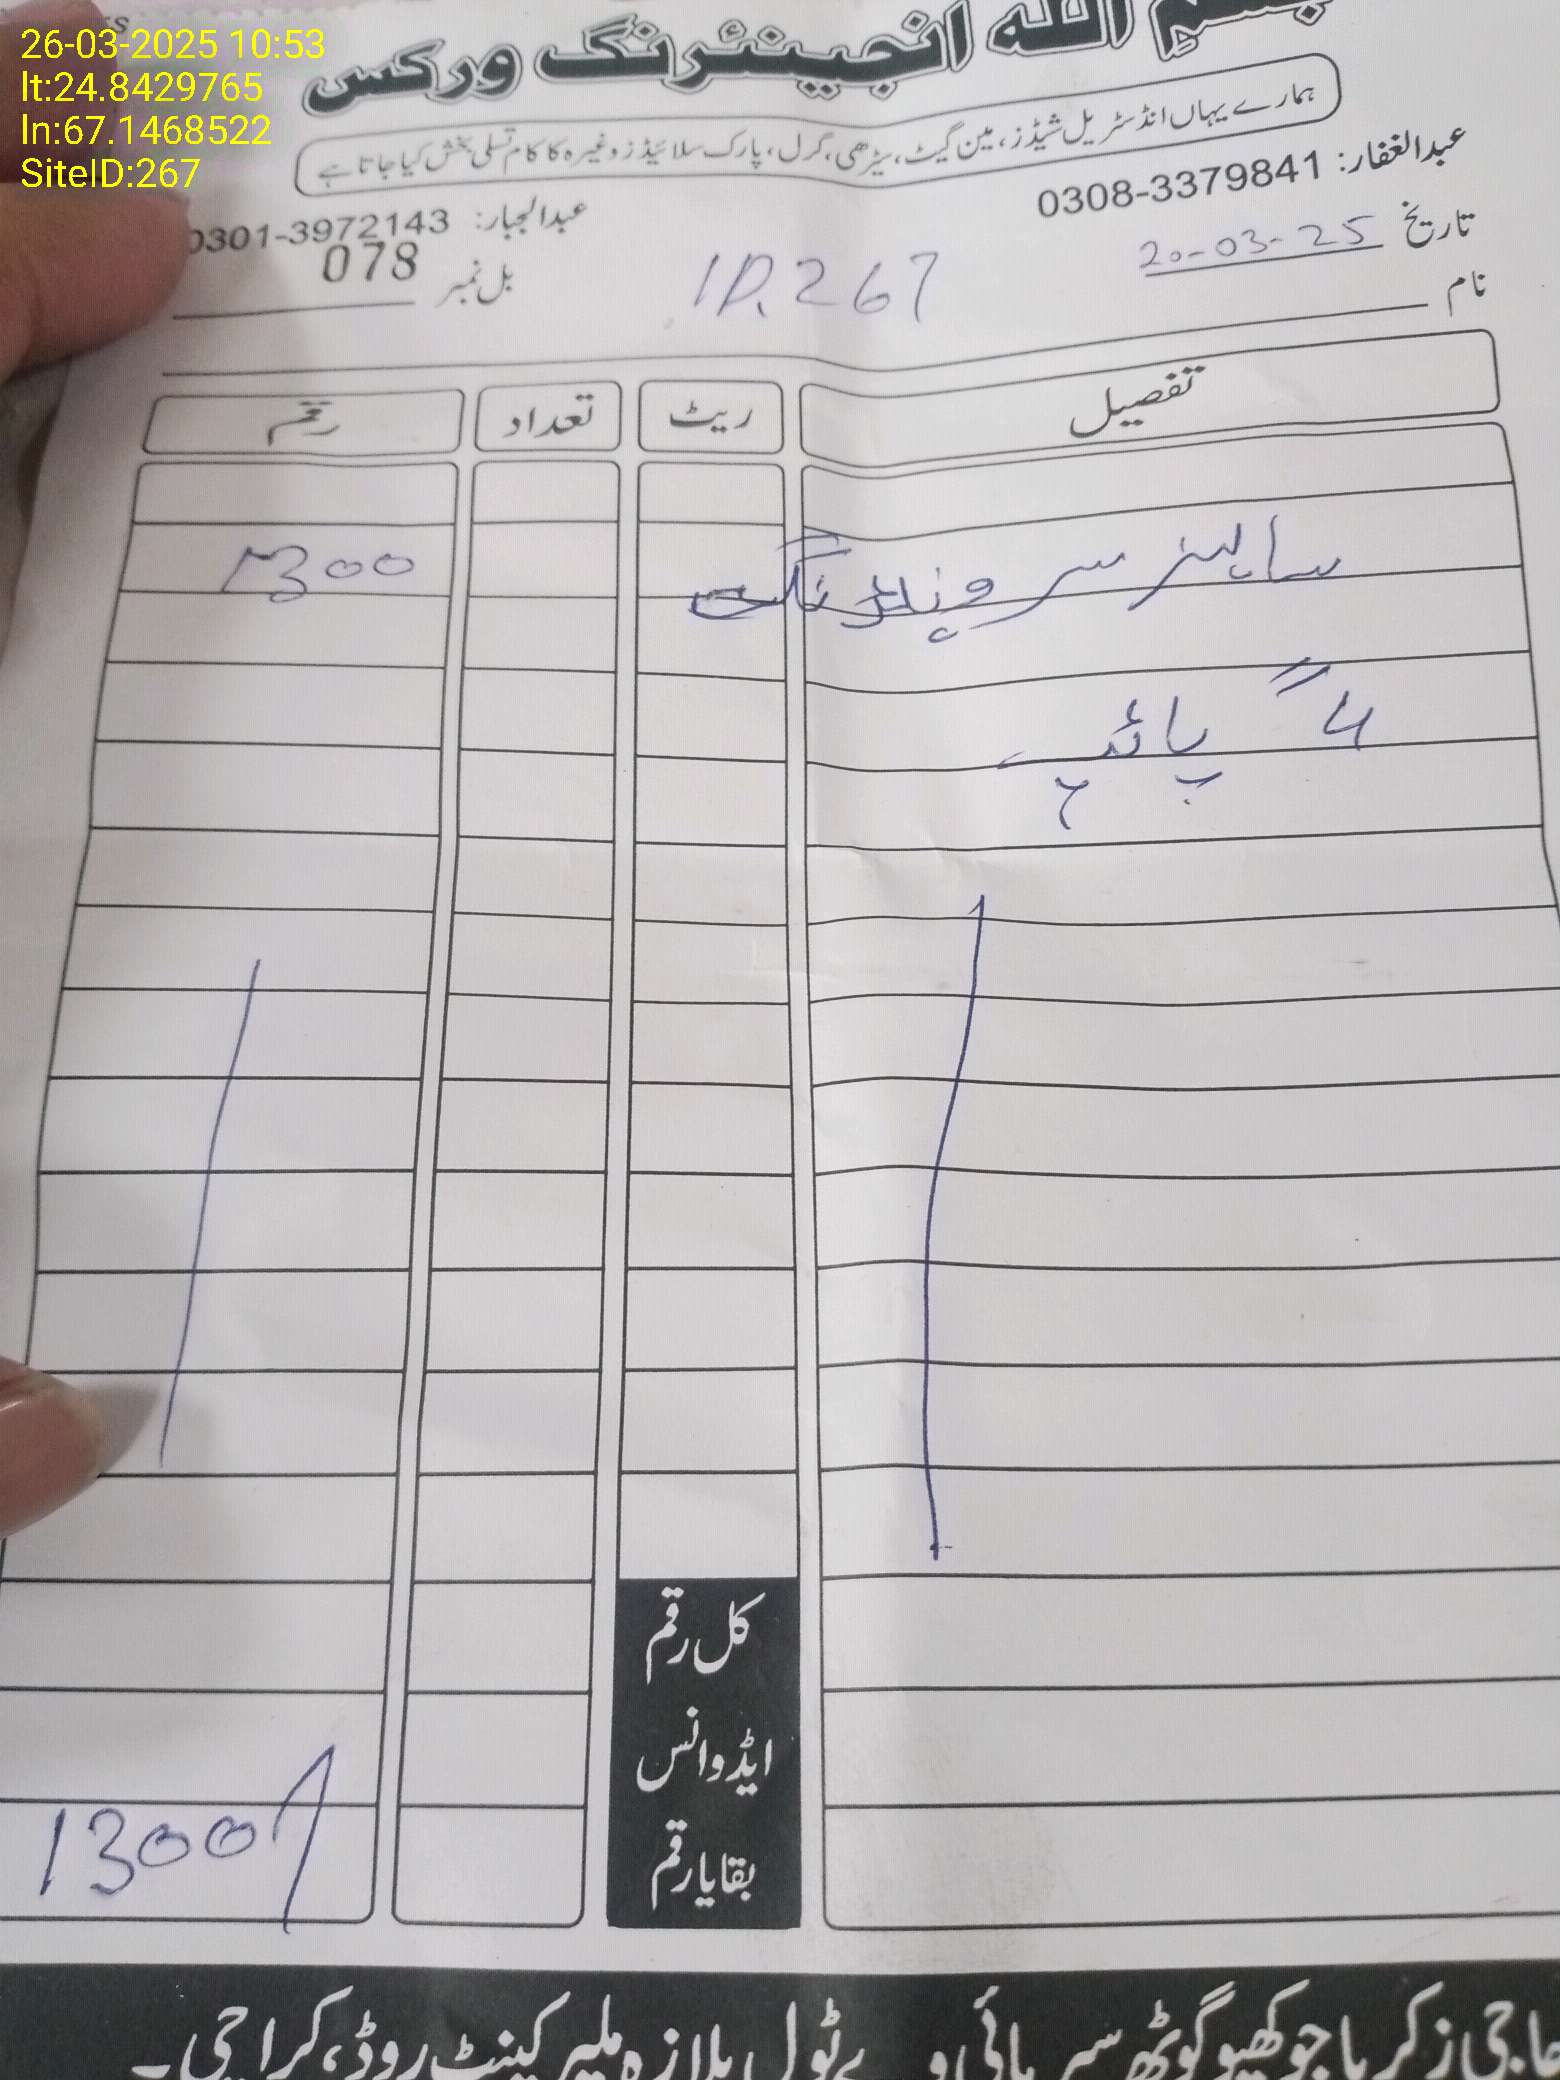 26-03-2025 10:53
lt:24.8429765
ln:67.1468522
SiteID:267
بسم اللہ انجینئرنگ ورکس
ہمارے یہاں انڈسٹریل شیڈز، مین گیٹ، سیڑھی، گرل، پارک سلائیڈز وغیرہ کا کام تسلی بخش کیا جاتا ہے
عبدالغفار: 0308-3379841
عبدالجبار: 0301-3972143
تاریخ 20-03-25
ID.267
بل نمبر 078
نام
تفصیل ریٹ تعداد رقم
300
4" پائپ
کل رقم
ایڈوانس
بقایا رقم 1300/
حاجی زکریا جوکھیو گوٹھ سپر ہائی وے ٹول پلازہ ملیر کینٹ روڈ، کراچی۔